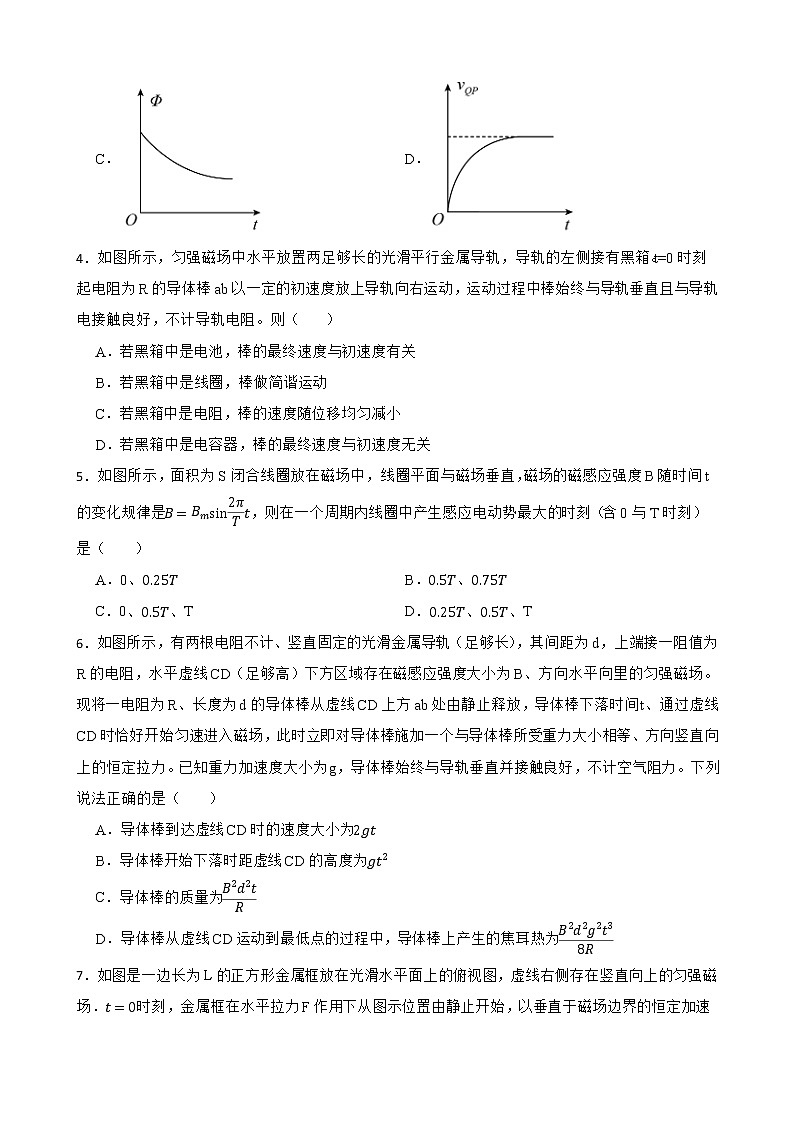 Φ
v_QP
C.
D.
O
t
O
t
4．如图所示，匀强磁场中水平放置两足够长的光滑平行金属导轨，导轨的左侧接有黑箱，t=0 时刻
起电阻为 R 的导体棒 ab 以一定的初速度放上导轨向右运动，运动过程中棒始终与导轨垂直且与导轨
电接触良好，不计导轨电阻。则（　　）
A．若黑箱中是电池，棒的最终速度与初速度有关
B．若黑箱中是线圈，棒做简谐运动
C．若黑箱中是电阻，棒的速度随位移均匀减小
D．若黑箱中是电容器，棒的最终速度与初速度无关
5．如图所示，面积为 S 闭合线圈放在磁场中，线圈平面与磁场垂直，磁场的磁感应强度 B 随时间 t
的变化规律是B = B_m sin \frac{2π}{T} t，则在一个周期内线圈中产生感应电动势最大的时刻（含 0 与 T 时刻）
是（　　）
A．0、0.25T　　B．0.5T、0.75T
C．0、0.5T、T　　D．0.25T、0.5T、T
6．如图所示，有两根电阻不计、竖直固定的光滑金属导轨（足够长），其间距为 d，上端接一阻值为
R 的电阻，水平虚线 CD（足够高）下方区域存在磁感应强度大小为 B、方向水平向里的匀强磁场。
现将一电阻为 R、长度为 d 的导体棒从虚线 CD 上方 ab 处由静止释放，导体棒下落时间t、通过虚线
CD 时恰好开始匀速进入磁场，此时立即对导体棒施加一个与导体棒所受重力大小相等、方向竖直向
上的恒定拉力。已知重力加速度大小为g，导体棒始终与导轨垂直并接触良好，不计空气阻力。下列
说法正确的是（　　）
A．导体棒到达虚线 CD 时的速度大小为2gt
B．导体棒开始下落时距虚线 CD 的高度为gt²
C．导体棒的质量为\frac{B²d²t}{R}
D．导体棒从虚线 CD 运动到最低点的过程中，导体棒上产生的焦耳热为\frac{B²d²g²t³}{8R}
7．如图是一边长为 L 的正方形金属框放在光滑水平面上的俯视图，虚线右侧存在竖直向上的匀强磁
场．t = 0时刻，金属框在水平拉力 F 作用下从图示位置由静止开始，以垂直于磁场边界的恒定加速